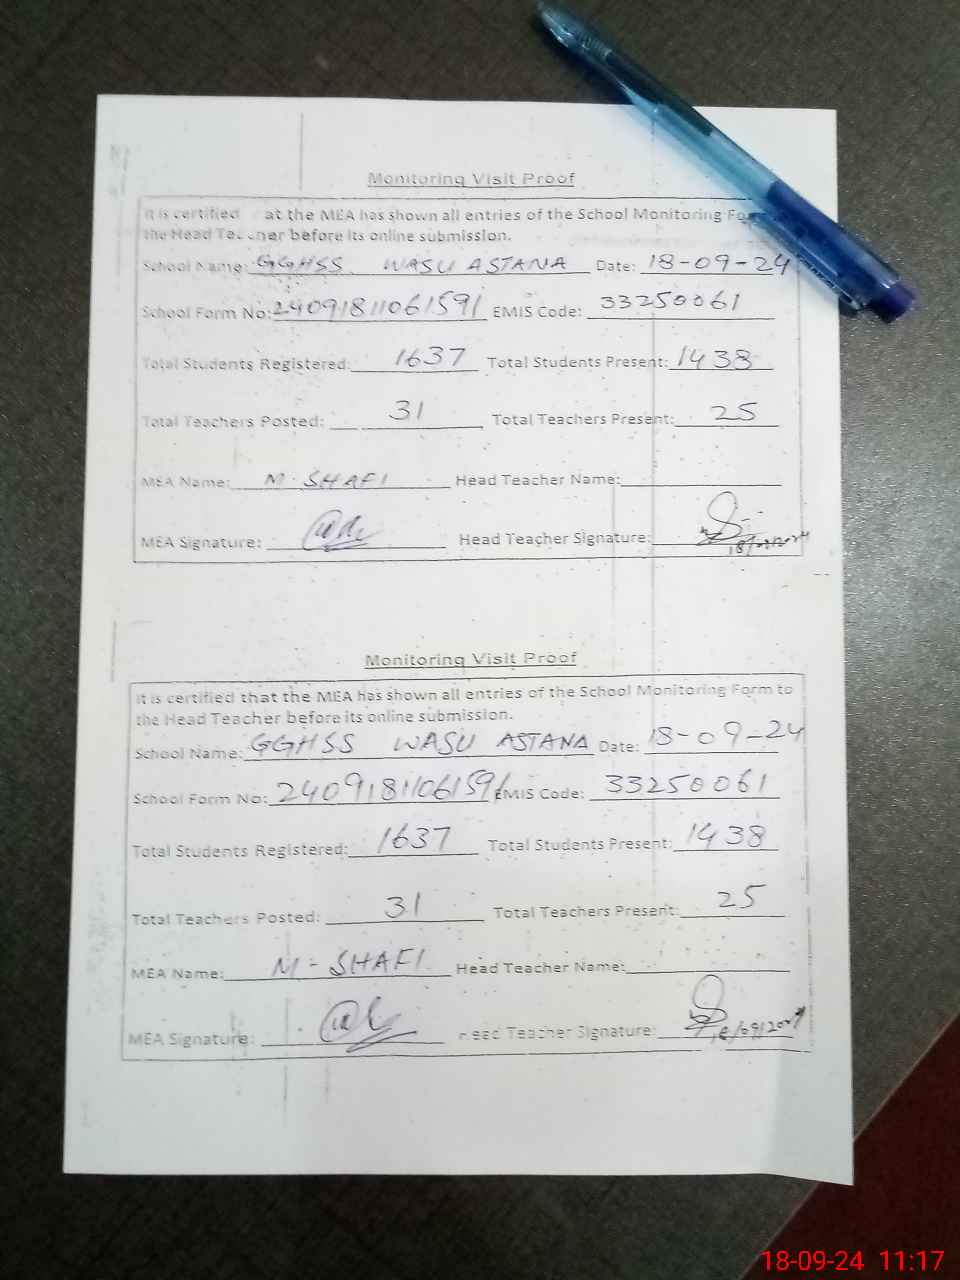 Monitoring Visit Proof
It is certified at the MEA has shown all entries of the School Monitoring
the Head before its online submission.
School Name: GGHSS WASU ASTANA Date: 18-09-24
School Form No: 24091811061591 EMIS Code: 33250061
Total Students Registered: 1637 Total Students Present: 1438
Total Teachers Posted: 31 Total Teachers Present: 25
MEA Name: M. SHAFI Head Teacher Name:
MEA Signature: Head Teacher Signature:
Monitoring Visit Proof
It is certified that the MEA has shown all entries of the School Monitoring Form to
the Head Teacher before its online submission.
School Name: GGHSS WASU ASTANA Date: 18-09-24
School Form No: 24091811061591 EMIS Code: 33250061
Total Students Registered: 1637 Total Students Present: 1438
Total Teachers Posted: 31 Total Teachers Present: 25
MEA Name: M - SHAFI Head Teacher Name:
MEA Signature: Head Teacher Signature:
18-09-24 11:17